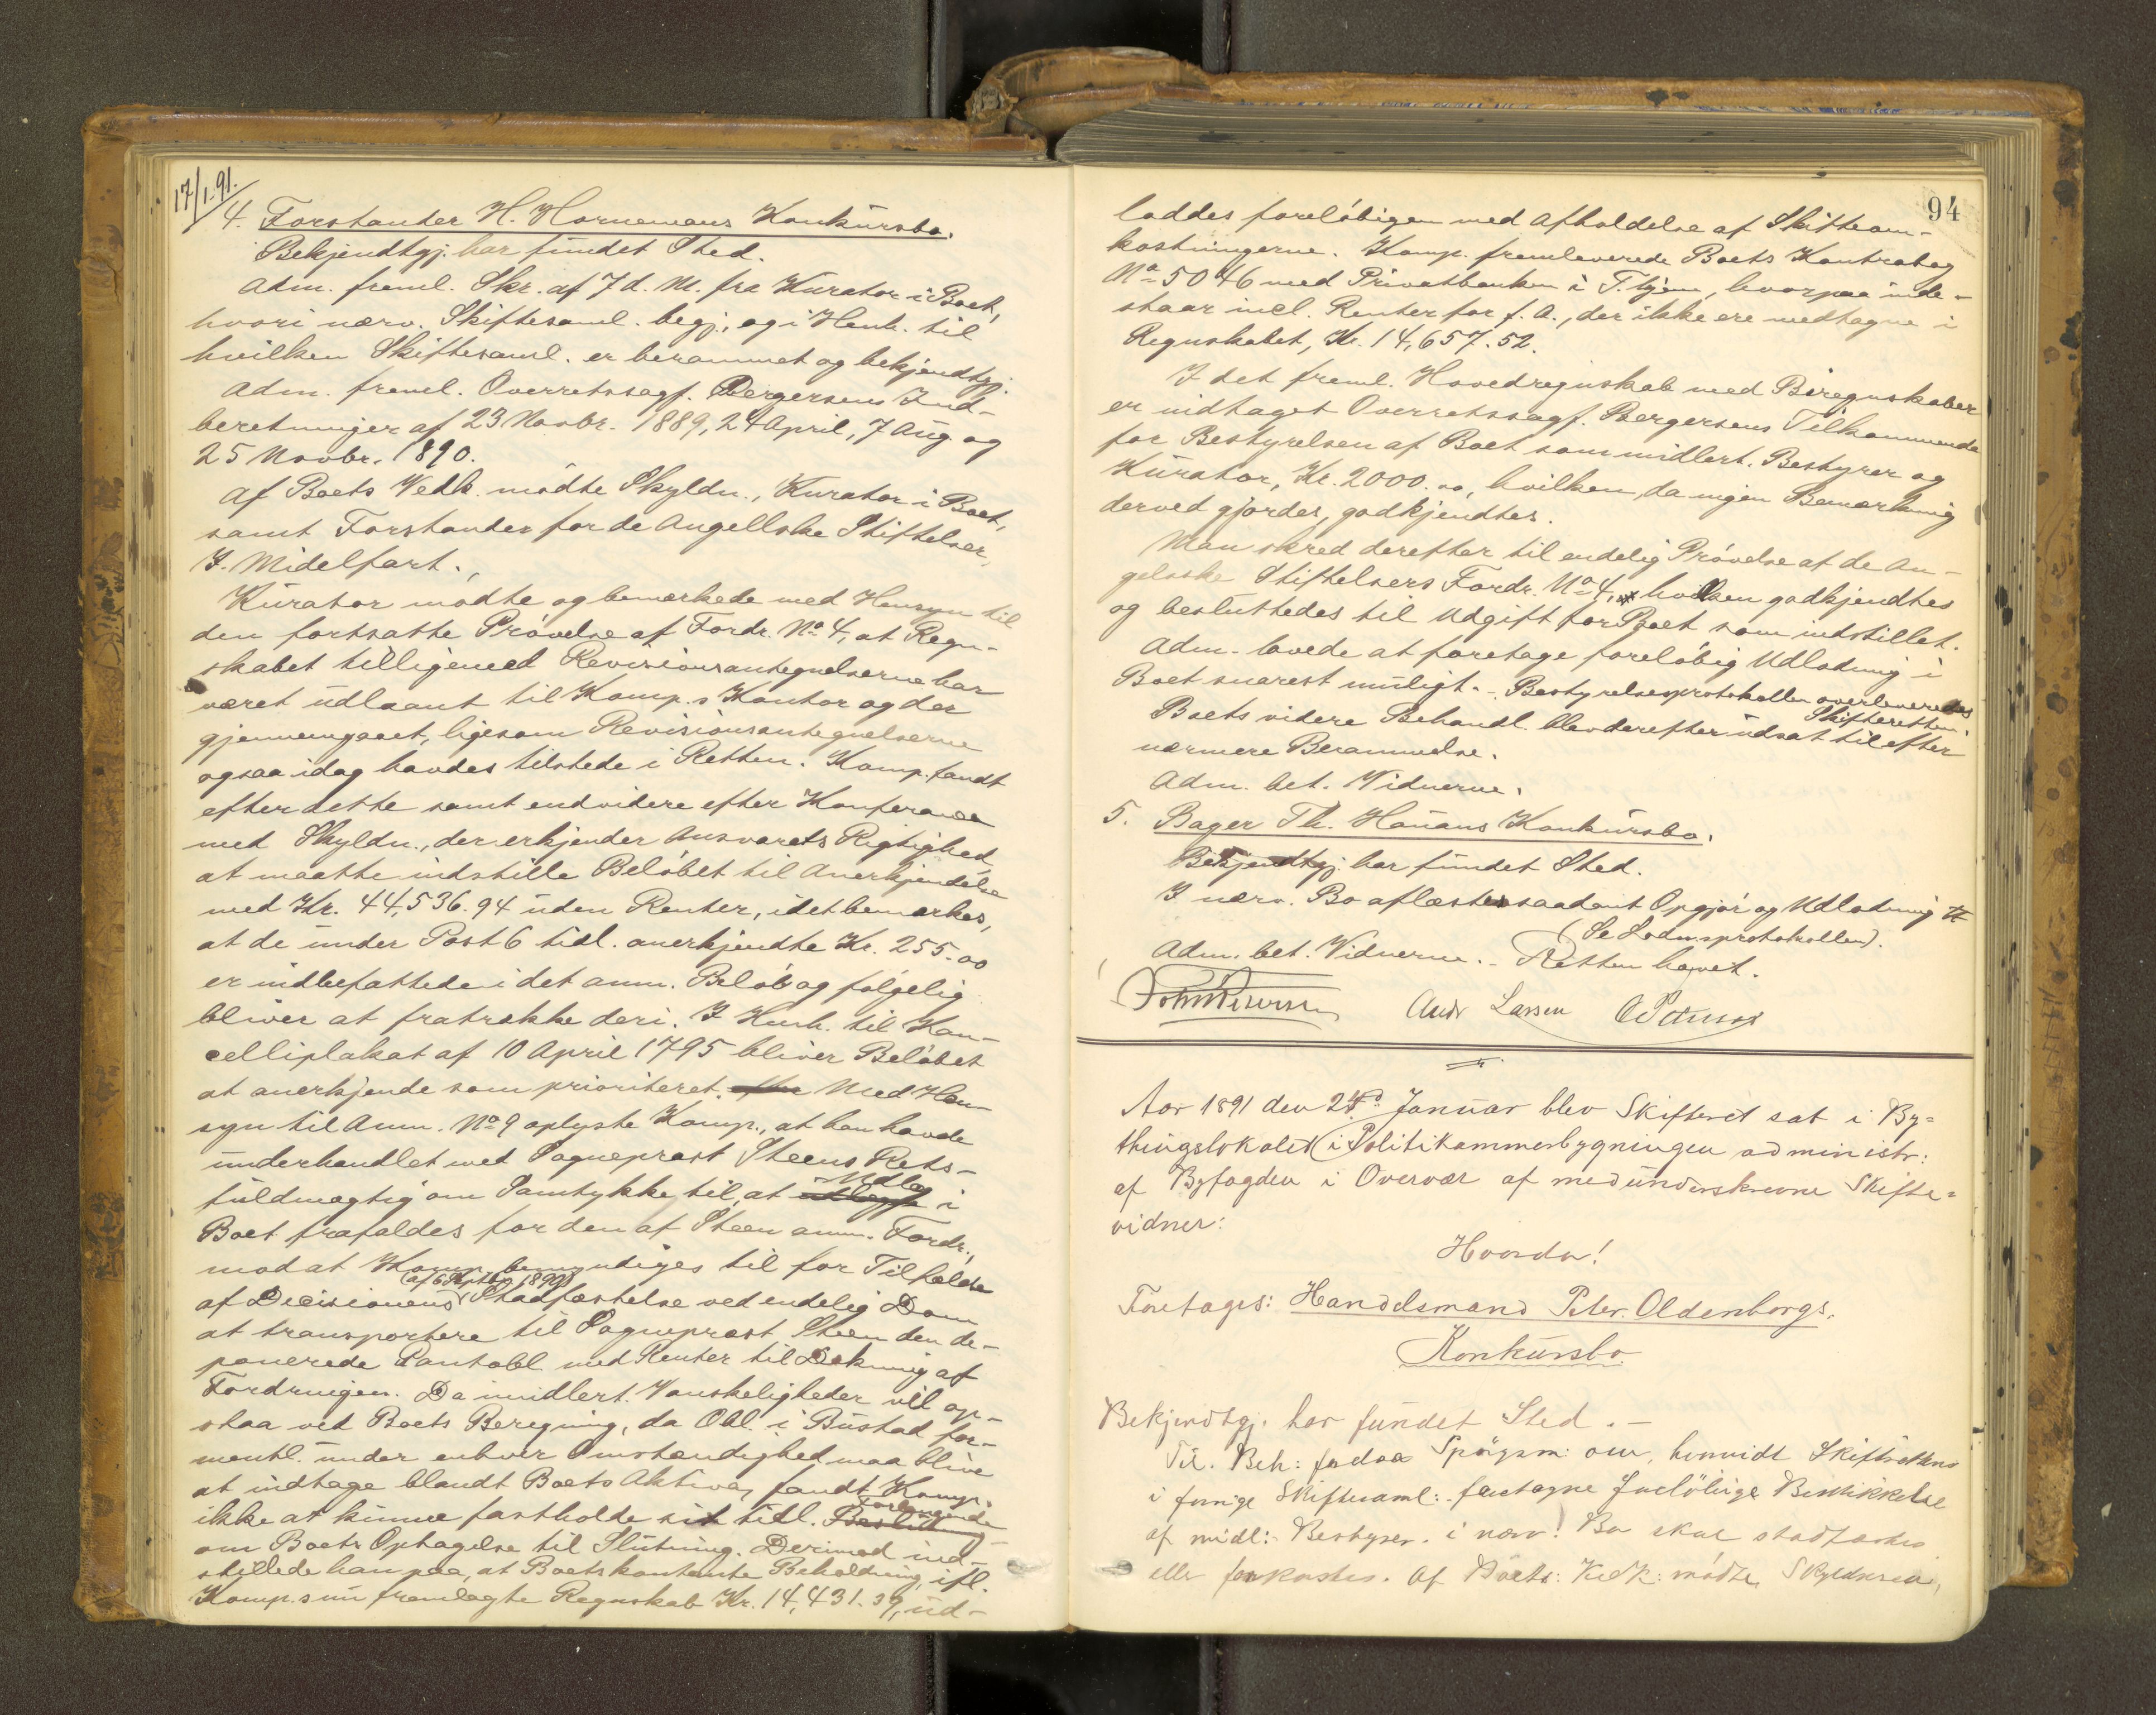 17/1.91.
4. Forstander H. Hornemans Konkursbo.
Bekjendtgj. har fundet Sted.
Adm. freml. Skr. af 7 d. M. fra Kurator i Boet,
hvori nærv. Skiftesaml. begj., og i Henh. til
hvilken Skiftesaml. er berammet og bekjendtgj.
Adm. freml. Overretssagf. Bergersens Ind-
beretninger af 23 Novbr. 1889, 24 April, 7 Aug og
25 Novbr. 1890.
Af Boets Vedk. mødte Skyldn., Kurator i Boet,
samt Forstander for de Angellske Stiftelser,
J. Midelfart.
Kurator mødte og bemærkede med Hensyn til
den fortsatte Prøvelse af Fordr. No 4, at Regn-
skabet tilligemed Revisionsantegnelserne har
været udlaant til Komp.s Kontor og der
gjennemgaaet, ligesom Revisionsantegnelserne
ogsaa idag havdes tilstede i Retten. Komp. fandt
efter dette samt endvidere efter Konferance
med Skyldn., der erkjender Ansvarets Rigtighed,
at maatte indstille Beløbet til Anerkjendelse
med Kr. 44,536.94 uden Renter, idet bemærkes,
at de under Post 6 tidl. anerkjendte Kr. 255.00
er indbefattede i det anm. Beløb og følgelig
bliver at fratrække deri. I Henh. til Kan-
celliplakat af 10 April 1795 bliver Beløbet
at anerkjende som prioriteret. Med Hen-
syn til Anm. No 9 oplyste Komp., at han havde
underhandlet med Sogneprest Steens Rets-
fuldmægtig om Samtykke til, at Udlæg i
Boet frafaldes for den af Steen anm. Fordr.,
mod at Komp. bemyndiges til for Tilfælde
af Decisionens (af 6 Septbr. 1890) Stadfæstelse ved endelig Dom
at transportere til Sogneprest Steen den de-
ponerede Pantobl. med Renter til Dækning af
Fordringen. Da imidlert. Vanskeligheder vil op-
staa ved Boets Beregning, da Obl. i Bustad for-
mentl. under enhver Omstændighed maa blive
at indtage blandt Boets Aktiver, fandt Komp.
ikke at kunne fastholde sit tidl. Forlangende
om Boets Optagelse til Slutning. Derimod ind-
stillede han paa, at Boets kontante Beholdning, ifl.
Komp.s nu fremlagte Regnskab Kr. 14,431.39, ud-
94
loddes foreløbigen med Afholdelse af Skifteom-
kostningerne. Komp. fremleverede Boets Kontrabog
No 5046 med Privatbanken i T.hjem, hvorpaa inde-
staar incl. Renter for f. A., der ikke ere medtagne i
Regnskabet, Kr. 14,657.52.
I det freml. Hovedregnskab med Biregnskaber
er indtaget Overretssagf. Bergersens Tilkommende
for Bestyrelsen af Boet som midlert. Bestyrer og
Kurator, Kr. 2000.00, hvilken, da ingen Bemærkning
derved gjordes, godkjendtes.
Man skred derefter til endelig Prøvelse af de An-
gelske Stiftelsers Fordr. No 4, hvilken godkjendtes
og besluttedes til Udgift for Boet som indstillet.
Adm. lovede at foretage foreløbig Udlodning i
Boet snarest muligt. - Bestyrelsesprotokollen overleveredes
Skifteretten.
Boets videre Behandl. blev derefter udsat til efter
nærmere Berammelse.
Adm. bet. Vidnerne.
5. Bager Th. Hauans Konkursbo.
Bekjendtgj. har fundet Sted.
I nærv. Bo aflæstes saadant Opgjør og Udlodning
(Se Lodn.sprotokollen).
Adm. bet. Vidnerne. - Retten hævet.
Andr Larsen
Aar 1891 den 24de Januar blev Skifteret sat i By-
thingslokalet i Politikammerbygningen administr:
af Byfogden i Overvær af medunderskrevne Skifte-
vidner:
Hvorda!
Foretages: Handelsmand Peter Oldenborgs.
Konkursbo.
Bekjendtgj. har fundet Sted. -
Til Beh: Spörgsm: om, hvorvidt Skifterettens
i forrige Skiftesaml: foretagne foreløbige Beskikkelse
af midl: Bestyrer i nærv: Bo skal stadfæstes
eller forkastes. Af Boets Vedk: mødte Skyldneren,